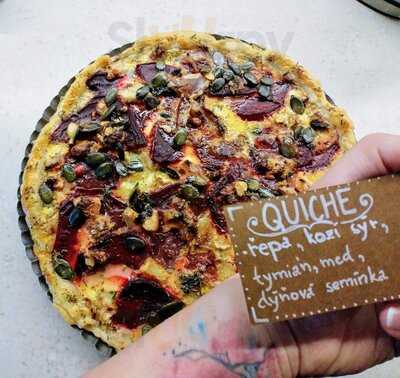 QUICHE
řepa, kozí sýr,
tymián, med,
dýňová semínka